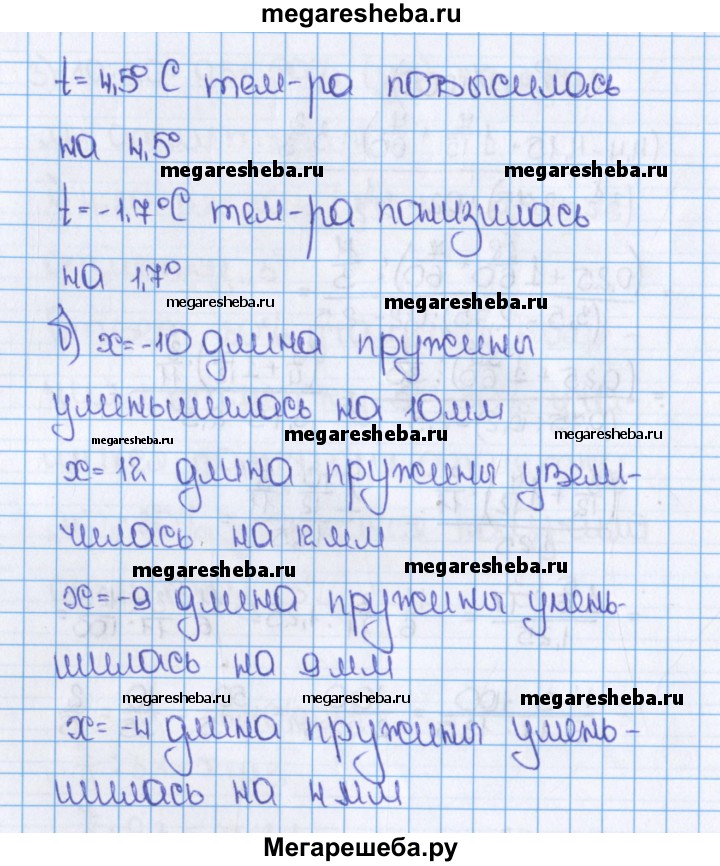 megaresheba.ru
t = 4,5° C тем-ра повысилась
на 4,5°
megaresheba.ru megaresheba.ru
t = -1,7°C тем-ра понизилась
на 1,7°
megaresheba.ru megaresheba.ru
б) x = -10 длина пружины
уменьшилась на 10мм
megaresheba.ru megaresheba.ru megaresheba.ru
x = 12 длина пружины увели-
чилась на 12 мм
megaresheba.ru megaresheba.ru
x = -9 длина пружины умень-
шилась на 9 мм
megaresheba.ru megaresheba.ru megaresheba.ru
x = -4 длина пружины умень-
шилась на 4 мм
Мегарешеба.ру